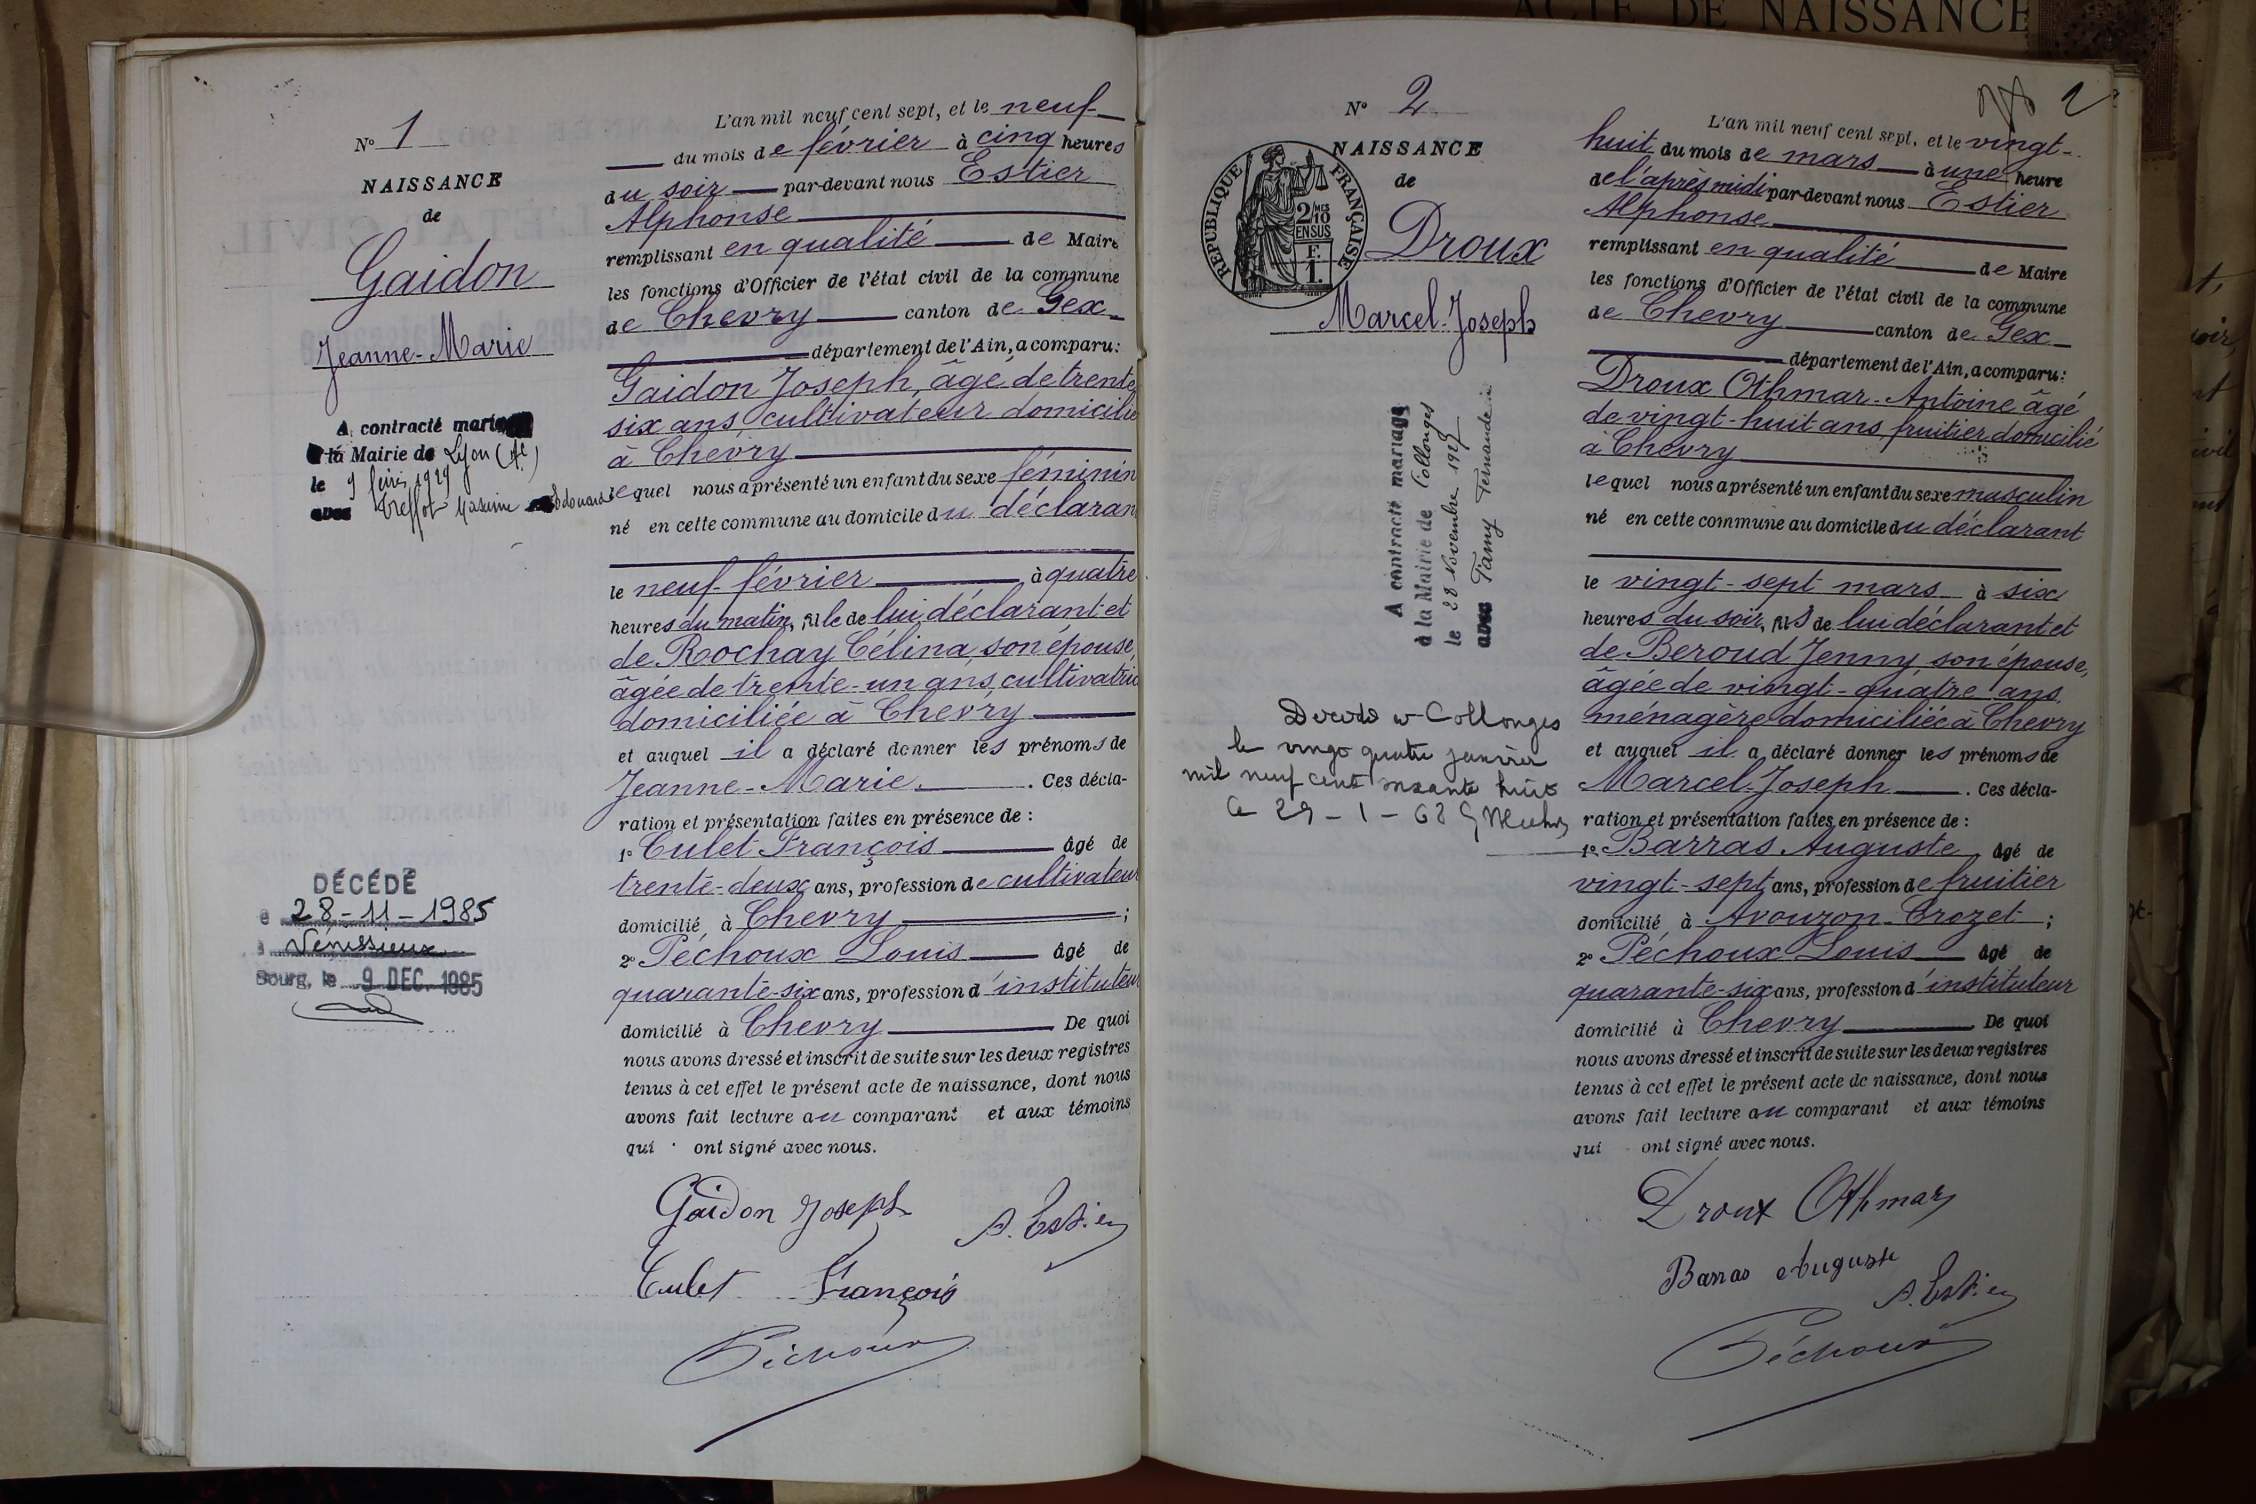 ACTE DE NAISSANCE
N° 1
NAISSANCE
de
Gaidon
Jeanne-Marie
A contracté
la Mairie de Lyon
le 9 1929
avec Maxime Edouard
DÉCÉDÉ
28-11-1985
à Vénissieux
Bourg, le 9 DEC. 1985
L'an mil neuf cent sept, et le neuf
du mois de février à cinq heures
du soir par-devant nous Estier
Alphonse
remplissant en qualité de Maire
les fonctions d'Officier de l'état civil de la commune
de Chevry canton de Gex
département de l'Ain, a comparu:
Gaidon Joseph, âgé de trente
six ans cultivateur domicilié
à Chevry
lequel nous a présenté un enfant du sexe féminin
né en cette commune au domicile du déclaran
le neuf février à quatre
heures du matin, fille de lui déclarant et
de Rochay Célina, son épouse,
âgée de trente-un ans, cultivatric
domiciliée à Chevry
et auquel il a déclaré donner les prénoms de
Jeanne-Marie. Ces décla-
ration et présentation faites en présence de :
1° Culet François âgé de
trente-deux ans, profession de cultivateur
domicilié à Chevry ;
2° Péchoux Louis âgé de
quarante-six ans, profession d'instituteur
domicilié à Chevry De quoi
nous avons dressé et inscrit de suite sur les deux registres
tenus à cet effet le présent acte de naissance, dont nous
avons fait lecture au comparant et aux témoins
qui ont signé avec nous.
Gaidon Joseph
A. Estier
Culet François
Péchoux
2
N° 2
NAISSANCE
de
RÉPUBLIQUE FRANÇAISE
2/10 MES
EN SUS
F.
1
Droux
Marcel-Joseph
A contracté mariage
à la Mairie de Collonges
le 28 Novembre 1927
avec Famy Fernande
Décédé à Collonges
le vingt quatre janvier
mil neuf cent soixante huit
Le 29-1-68
L'an mil neuf cent sept, et le vingt-
huit du mois de mars à une heure
de l'après midi par-devant nous Estier
Alphonse
remplissant en qualité de Maire
les fonctions d'Officier de l'état civil de la commune
de Chevry canton de Gex
département de l'Ain, a comparu:
Droux Othmar-Antoine âgé
de vingt-huit ans, fruitier domicilié
à Chevry
lequel nous a présenté un enfant du sexe masculin
né en cette commune au domicile du déclarant
le vingt-sept mars à six
heures du soir, fils de lui déclarant et
de Beroud Jenny, son épouse,
âgée de vingt-quatre ans
ménagère domiciliée à Chevry
et auquel il a déclaré donner les prénoms de
Marcel-Joseph. Ces décla-
ration et présentation faites en présence de :
1° Barras Auguste, âgé de
vingt-sept ans, profession de fruitier
domicilié à Avouzon-Crozet ;
2° Péchoux Louis âgé de
quarante-six ans, profession d'instituteur
domicilié à Chevry De quoi
nous avons dressé et inscrit de suite sur les deux registres
tenus à cet effet le présent acte de naissance, dont nous
avons fait lecture au comparant et aux témoins
qui ont signé avec nous.
Droux Othmar
Barras Auguste
A. Estier
Péchoux